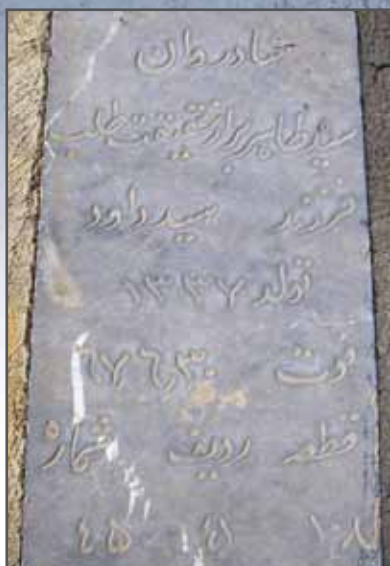 سید طاهر بزاز حقیقت طلب
فرزند سید داود
تولد ۱۳۳۷
فوت ۶۷٫۶٫۳۰
قطعه ردیف شماره
۱۰۸ ۶۱ ۴۵